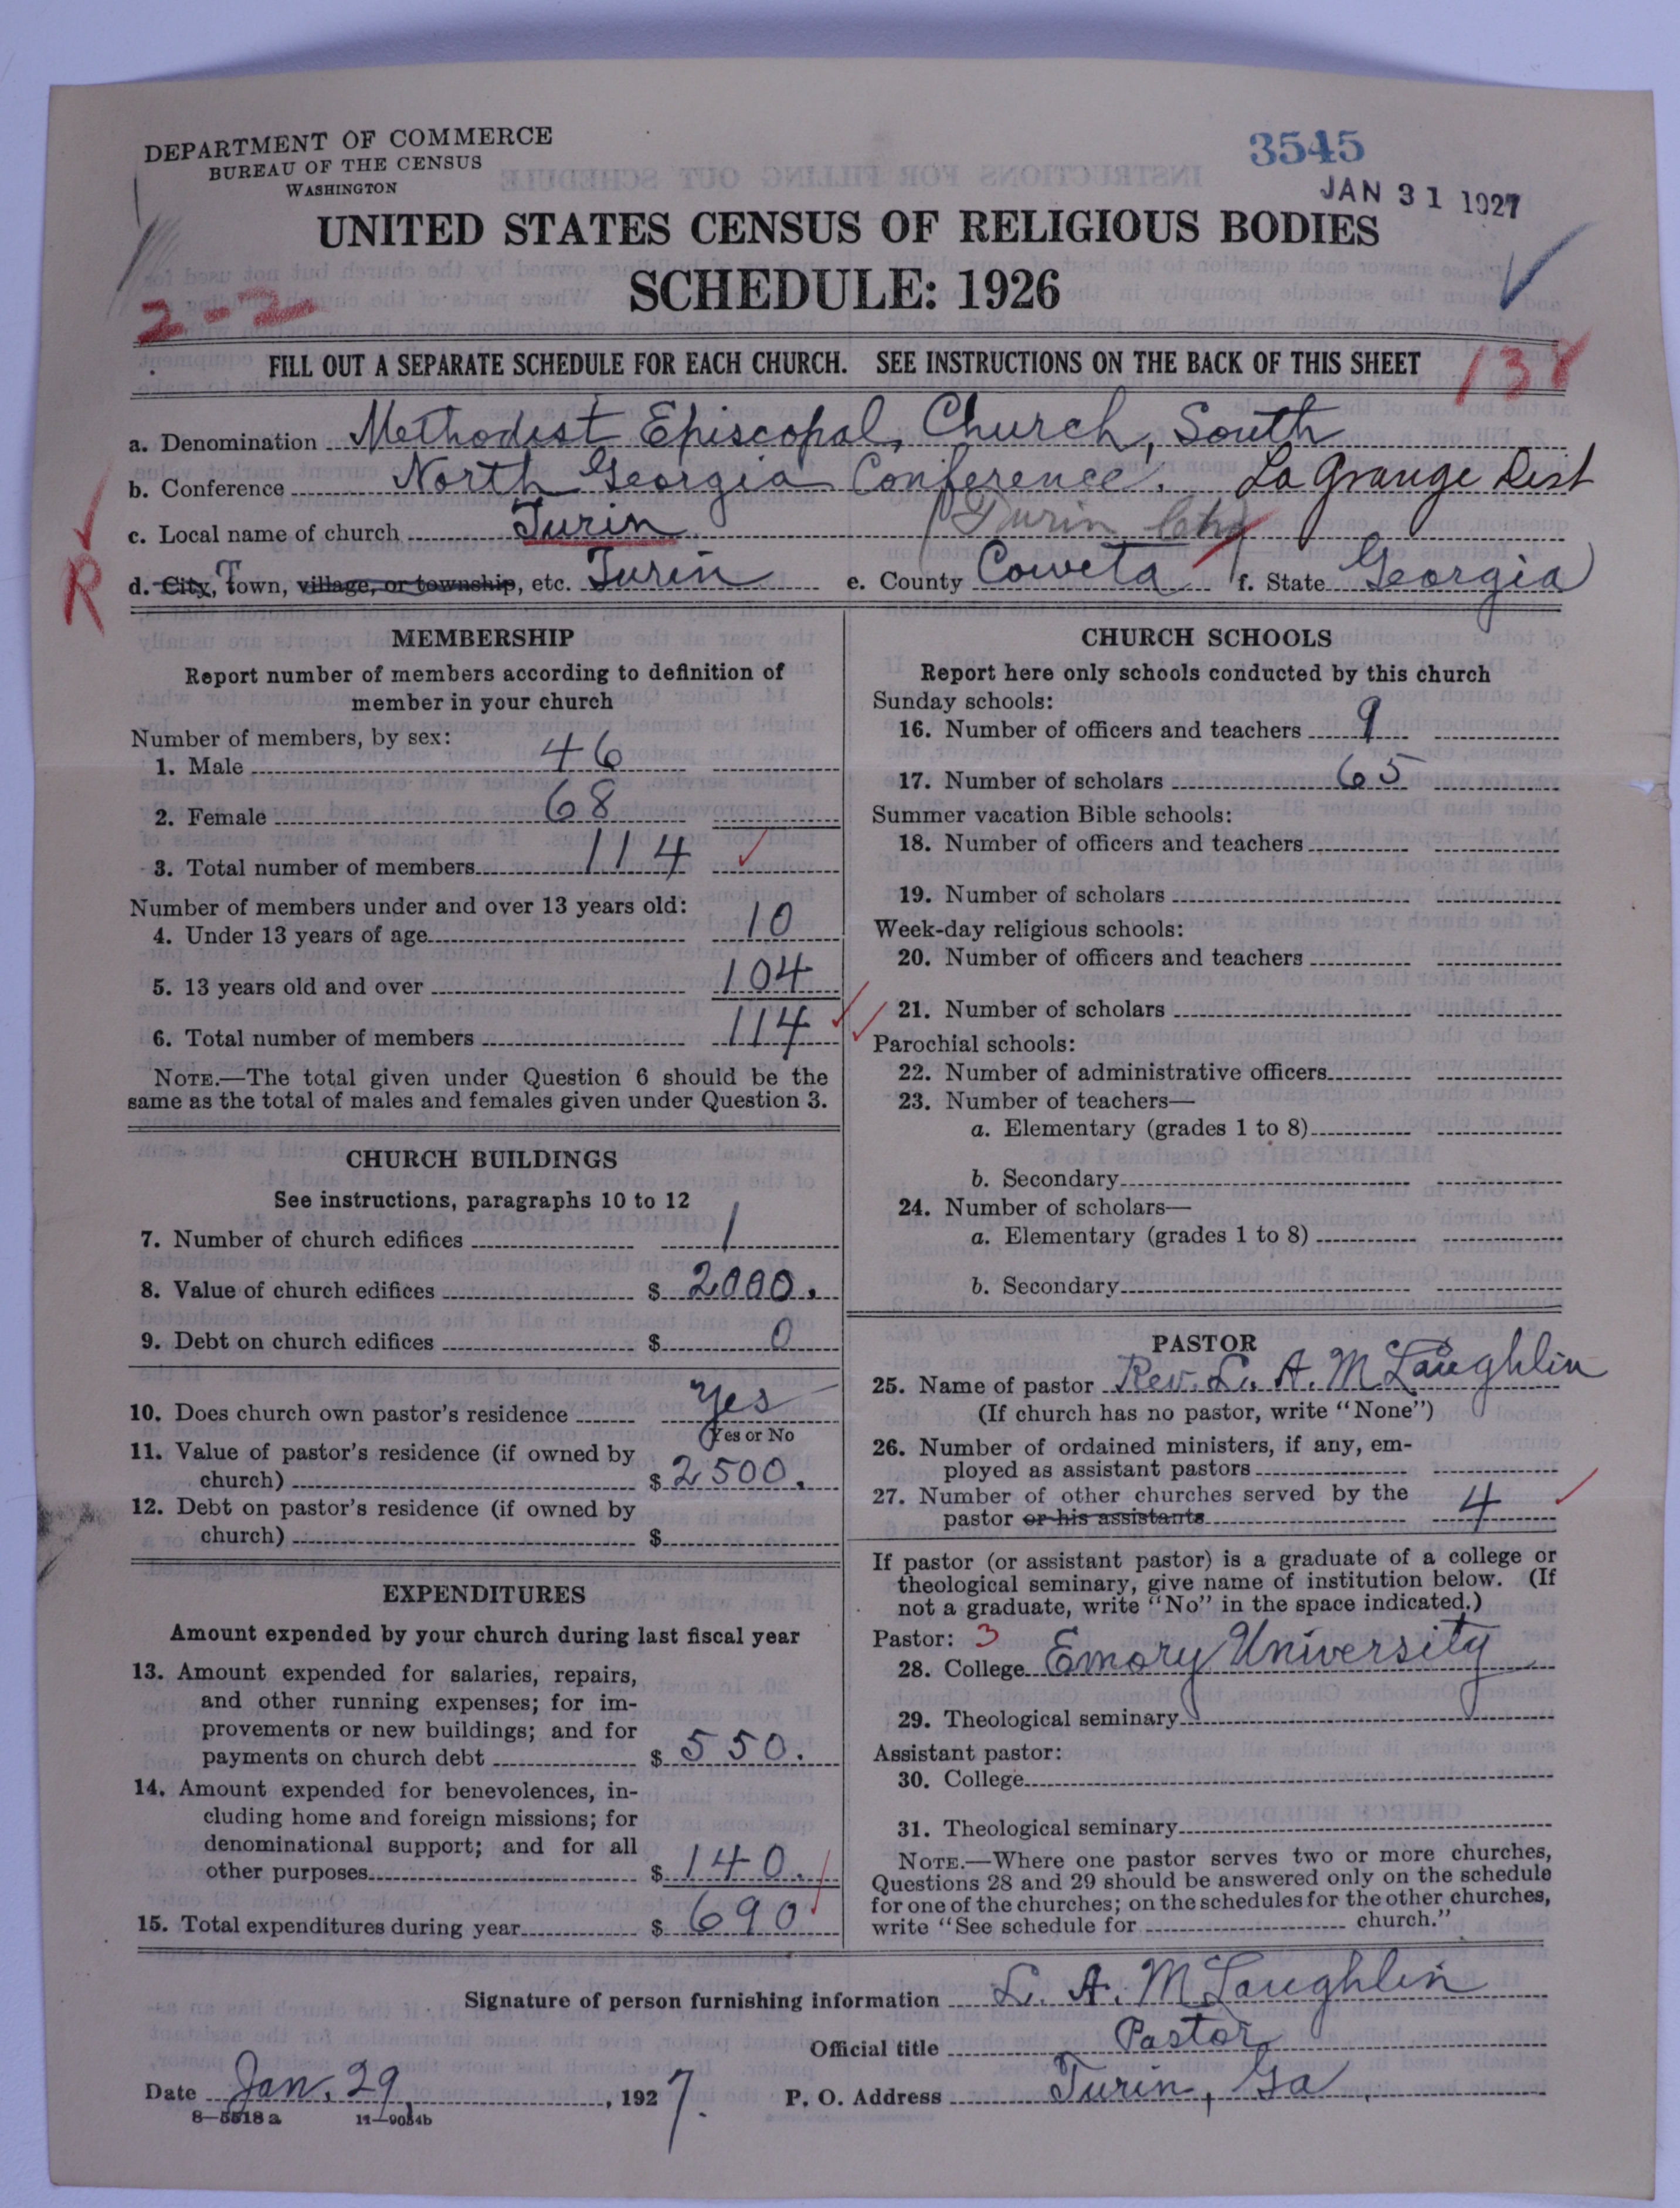 DEPARTMENT OF COMMERCE
BUREAU OF THE CENSUS
WASHINGTON
3545
JAN 31 1927
UNITED STATES CENSUS OF RELIGIOUS BODIES
SCHEDULE: 1926
2-2
FILL OUT A SEPARATE SCHEDULE FOR EACH CHURCH. SEE INSTRUCTIONS ON THE BACK OF THIS SHEET
138
a. Denomination Methodist Episcopal, Church, South
b. Conference North Georgia Conference. La Grange Dist
c. Local name of church Turin (Turin
R
d. City, Town, village, or township, etc. Turin e. County Coweta f. State Georgia
MEMBERSHIP
Report number of members according to definition of
member in your church
Number of members, by sex:
1. Male 46
2. Female 68
3. Total number of members 114
Number of members under and over 13 years old:
4. Under 13 years of age 10
5. 13 years old and over 104
6. Total number of members 114
NOTE.—The total given under Question 6 should be the
same as the total of males and females given under Question 3.
CHURCH BUILDINGS
See instructions, paragraphs 10 to 12
7. Number of church edifices 1
8. Value of church edifices $ 2000.
9. Debt on church edifices $ 0
10. Does church own pastor's residence Yes
(Yes or No
11. Value of pastor's residence (if owned by
church) $ 2500.
12. Debt on pastor's residence (if owned by
church) $
EXPENDITURES
Amount expended by your church during last fiscal year
13. Amount expended for salaries, repairs,
and other running expenses; for im-
provements or new buildings; and for
payments on church debt $ 550.
14. Amount expended for benevolences, in-
cluding home and foreign missions; for
denominational support; and for all
other purposes $ 140.
15. Total expenditures during year $ 690
CHURCH SCHOOLS
Report here only schools conducted by this church
Sunday schools:
16. Number of officers and teachers 9
17. Number of scholars 65
Summer vacation Bible schools:
18. Number of officers and teachers
19. Number of scholars
Week-day religious schools:
20. Number of officers and teachers
21. Number of scholars
Parochial schools:
22. Number of administrative officers
23. Number of teachers—
a. Elementary (grades 1 to 8)
b. Secondary
24. Number of scholars—
a. Elementary (grades 1 to 8)
b. Secondary
PASTOR
25. Name of pastor Rev. L. A. McLaughlin
(If church has no pastor, write "None")
26. Number of ordained ministers, if any, em-
ployed as assistant pastors
27. Number of other churches served by the
pastor or his assistants 4
If pastor (or assistant pastor) is a graduate of a college or
theological seminary, give name of institution below. (If
not a graduate, write "No" in the space indicated.)
Pastor: 3
28. College Emory University
29. Theological seminary
Assistant pastor:
30. College
31. Theological seminary
NOTE.—Where one pastor serves two or more churches,
Questions 28 and 29 should be answered only on the schedule
for one of the churches; on the schedules for the other churches,
write "See schedule for church."
Signature of person furnishing information L. A. McLaughlin
Official title Pastor
Date Jan. 29, 1927. P. O. Address Turin, Ga.
8—5518 a 11—9034b